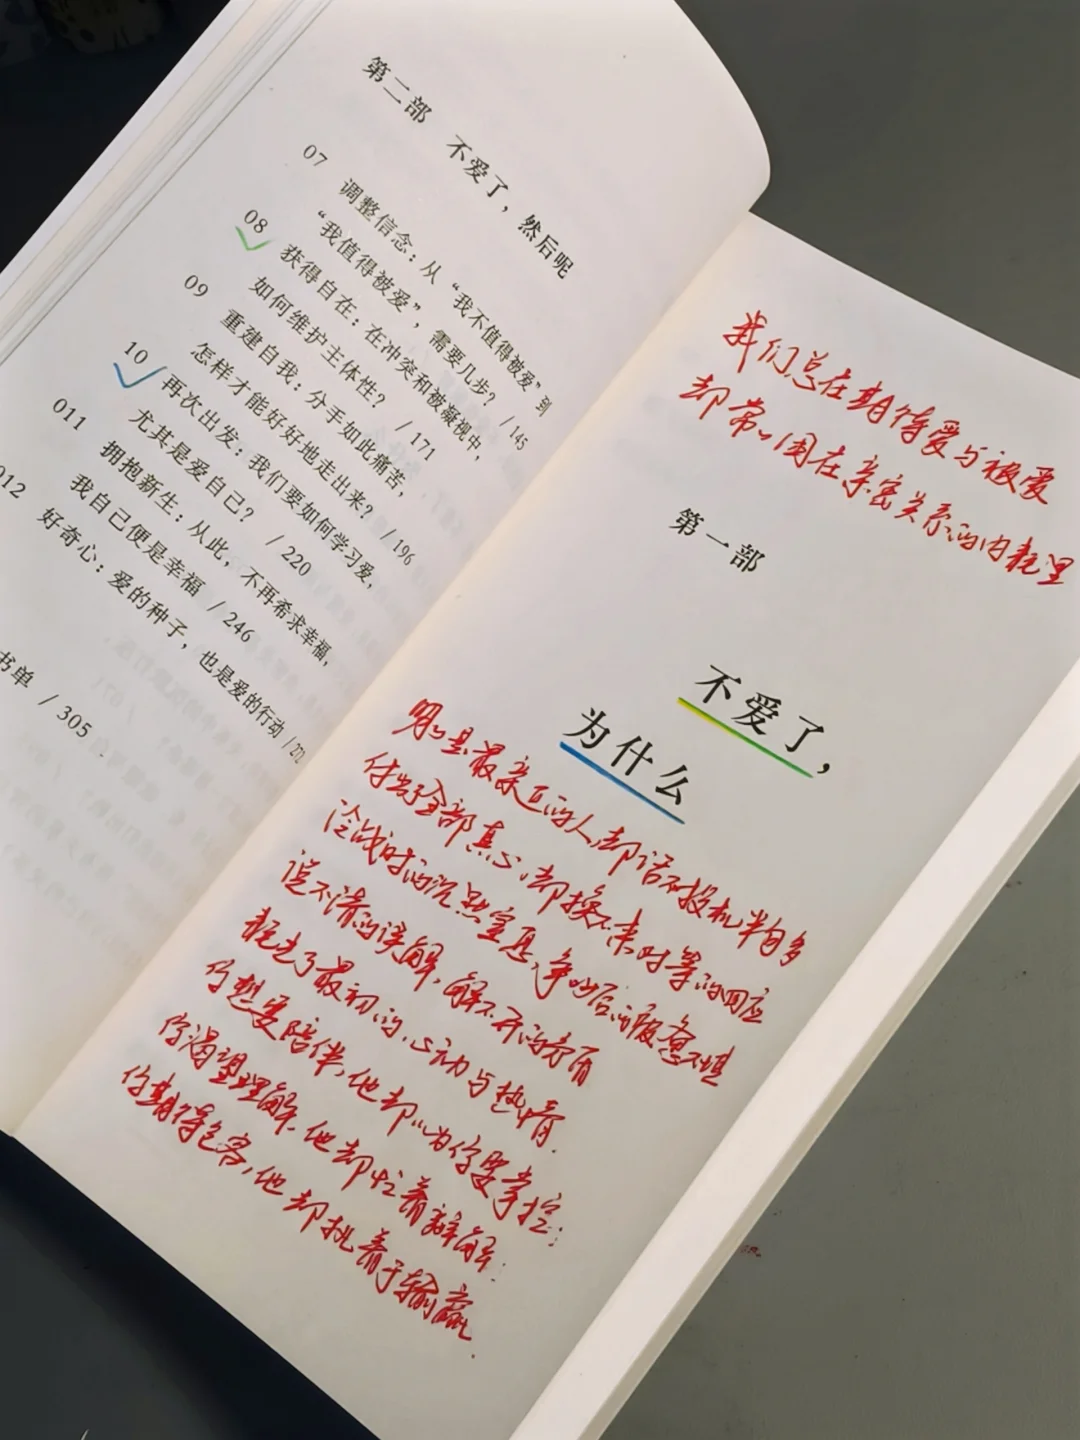 第二部 不爱了，然后呢
07 调整信念：从“我不值得被爱”到
“我值得被爱”，需要几步？ / 145
08 获得自在：在冲突和被凝视中，
如何维护主体性？ / 171
09 重建自我：分手如此痛苦，
怎样才能好好地走出来？ / 196
10 再次出发：我们要如何学习爱，
尤其是爱自己？ / 220
011 拥抱新生：从此，不再希求幸福，
我自己便是幸福 / 246
012 好奇心：爱的种子，也是爱的行动 / 272
书单 / 305
我们总在期待爱与被爱
却常常困在亲密关系的内耗里
第一部
不爱了，
为什么
明明是最亲近的人，却话不投机半句多
付出了全部真心，却换不来对等的回应
冷战时的沉默窒息，争吵后的疲惫不堪
说不清的误解，解不开的矛盾
耗走了最初的心动与热情.
你想要陪伴，他却以为你要掌控；
你渴望理解，他却忙着辩解；
你期待包容，他却执着于输赢.